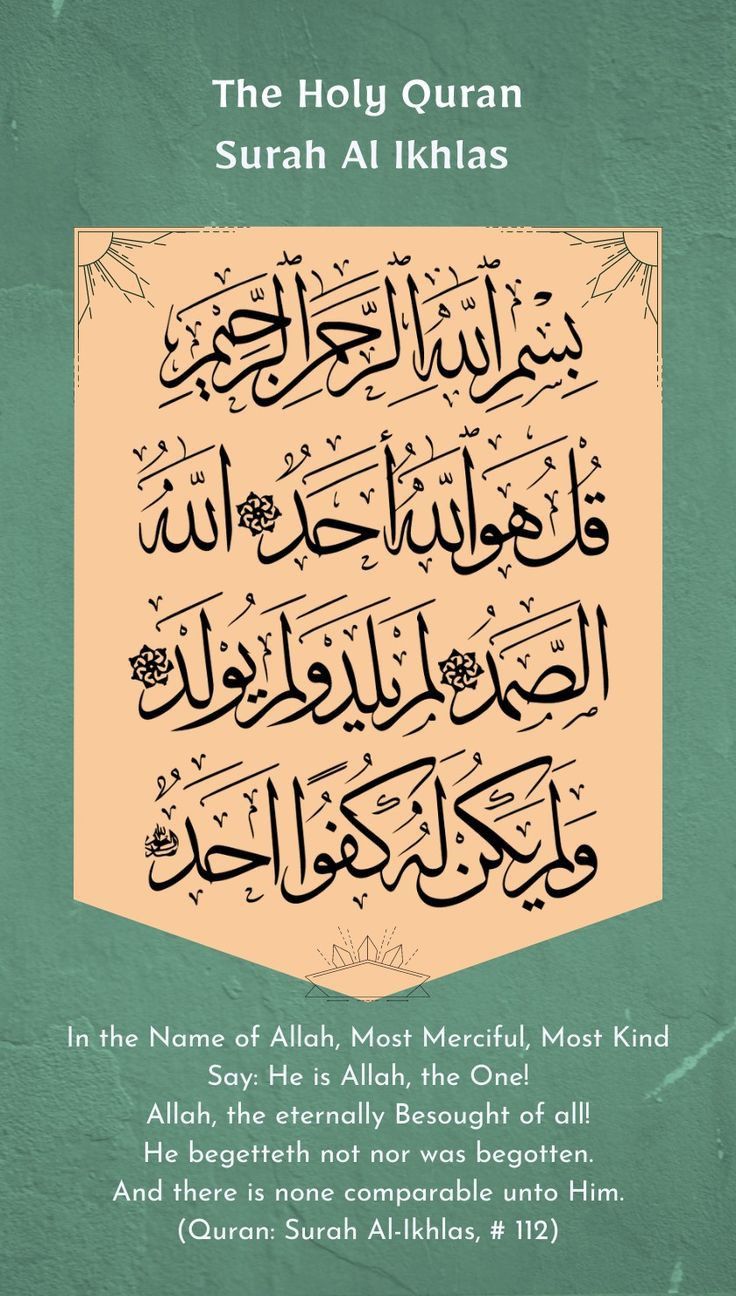 The Holy Quran
Surah Al Ikhlas
بِسْمِ ٱللَّهِ ٱلرَّحْمَٰنِ ٱلرَّحِيمِ
قُلْ هُوَ ٱللَّهُ أَحَدٌ ۝ اللَّهُ
الصَّمَدُ ۝ لَمْ يَلِدْ وَلَمْ يُولَدْ ۝
وَلَمْ يَكُنْ لَهُ كُفُوًا أَحَدٌ
In the Name of Allah, Most Merciful, Most Kind
Say: He is Allah, the One!
Allah, the eternally Besought of all!
He begetteth not nor was begotten.
And there is none comparable unto Him.
(Quran: Surah Al-Ikhlas, # 112)